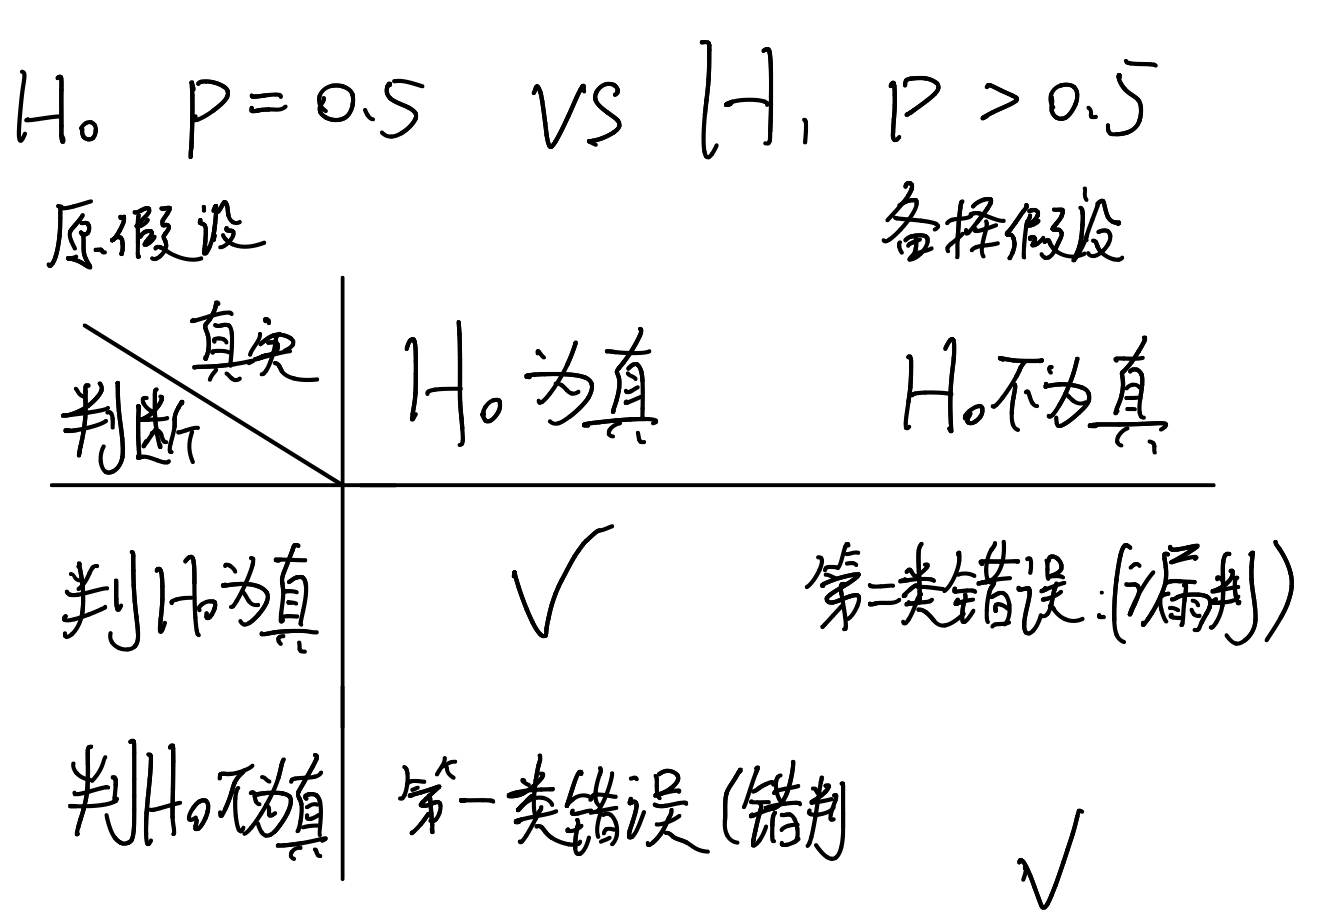 H₀ p=0.5 vs H₁ p>0.5
原假设 备择假设
真实 H₀为真 H₀不为真
判断
判H₀为真 ✓ 第二类错误:(漏判)
判H₀不为真 第一类错误(错判 ✓